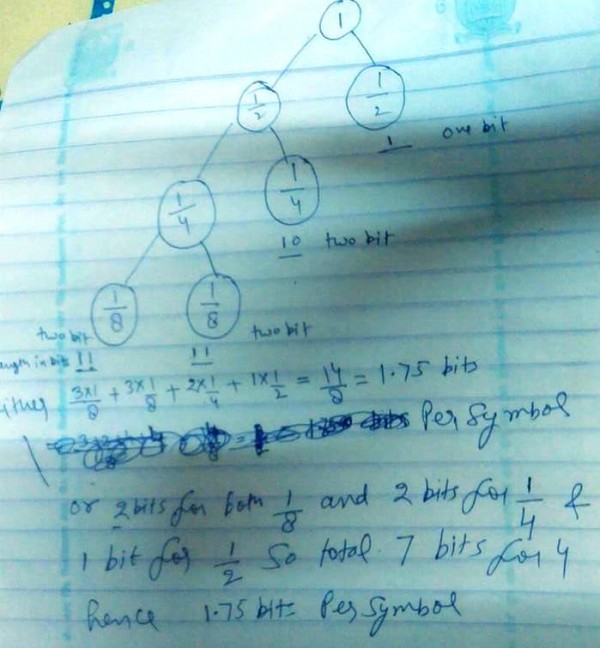 1
1/2 1/2
1 one bit
1/4 1/4
10 two bit
1/8 1/8
two bit two bit
in bit 11 11
3×1/8 + 3×1/8 + 2×1/4 + 1×1/2 = 14/8 = 1.75 bits
Per Symbol
or 2 bits for both 1/8 and 2 bits for 1/4 &
1 bit for 1/2 So total 7 bits for 4
hence 1.75 bits Per Symbol